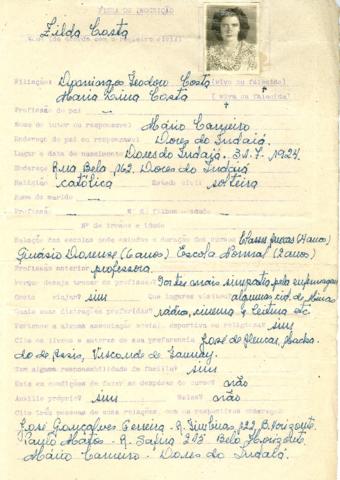 FICHA DE INSCRIÇÃO
Zilda Costa
de acordo com o registro civil
Filiação: Domingos Teodoro Costa (vivo ou falecido)
Maria Costa (viva ou falecida)
Profissão do pai
Nome do tutor ou responsavel Mário Carneiro
Endereço do pai ou responsavel Dores do Indaiá
Lugar e data de nascimento Dores do Indaiá. 1924.
Endereço Rua Bela, 162. Dores do Indaiá
Religião católica Estado civil solteira
Nome do marido
Profissão N. de filhos - idade
Nº de irmãos e idade
Relação das escolas onde estudou e duração do curso Classes anexas (4 anos)
Ginásio Dorense (6 anos) Escola Normal (2 anos)
Profissões anteriores professora.
Porque deseja trocar de profissão? Por ter mais simpatia pela enfermagem
Gosta viajar? sim Que lugares visitou? algumas cid. de Minas
Quais suas distrações preferidas? rádio, cinema, leitura etc.
Pertence a alguma associação social, esportiva ou religiosa? sim
Cite os livros e autores de sua preferencia José de Alencar, Macha-
do de Assis, Visconde de Taunay.
Tem alguma responsabilidade de familia? sim
Está em condições de fazer as despesas do curso? não
Auxilio próprio? sim Bolsa? não
Cite três pessoas de suas relações, com os respectivos endereços:
José Gonçalves Ferreira - R. Timbiras, B. Horizonte.
Paulo Matos - R. Belo Horizonte.
Mário Carneiro - Dores do Indaiá.